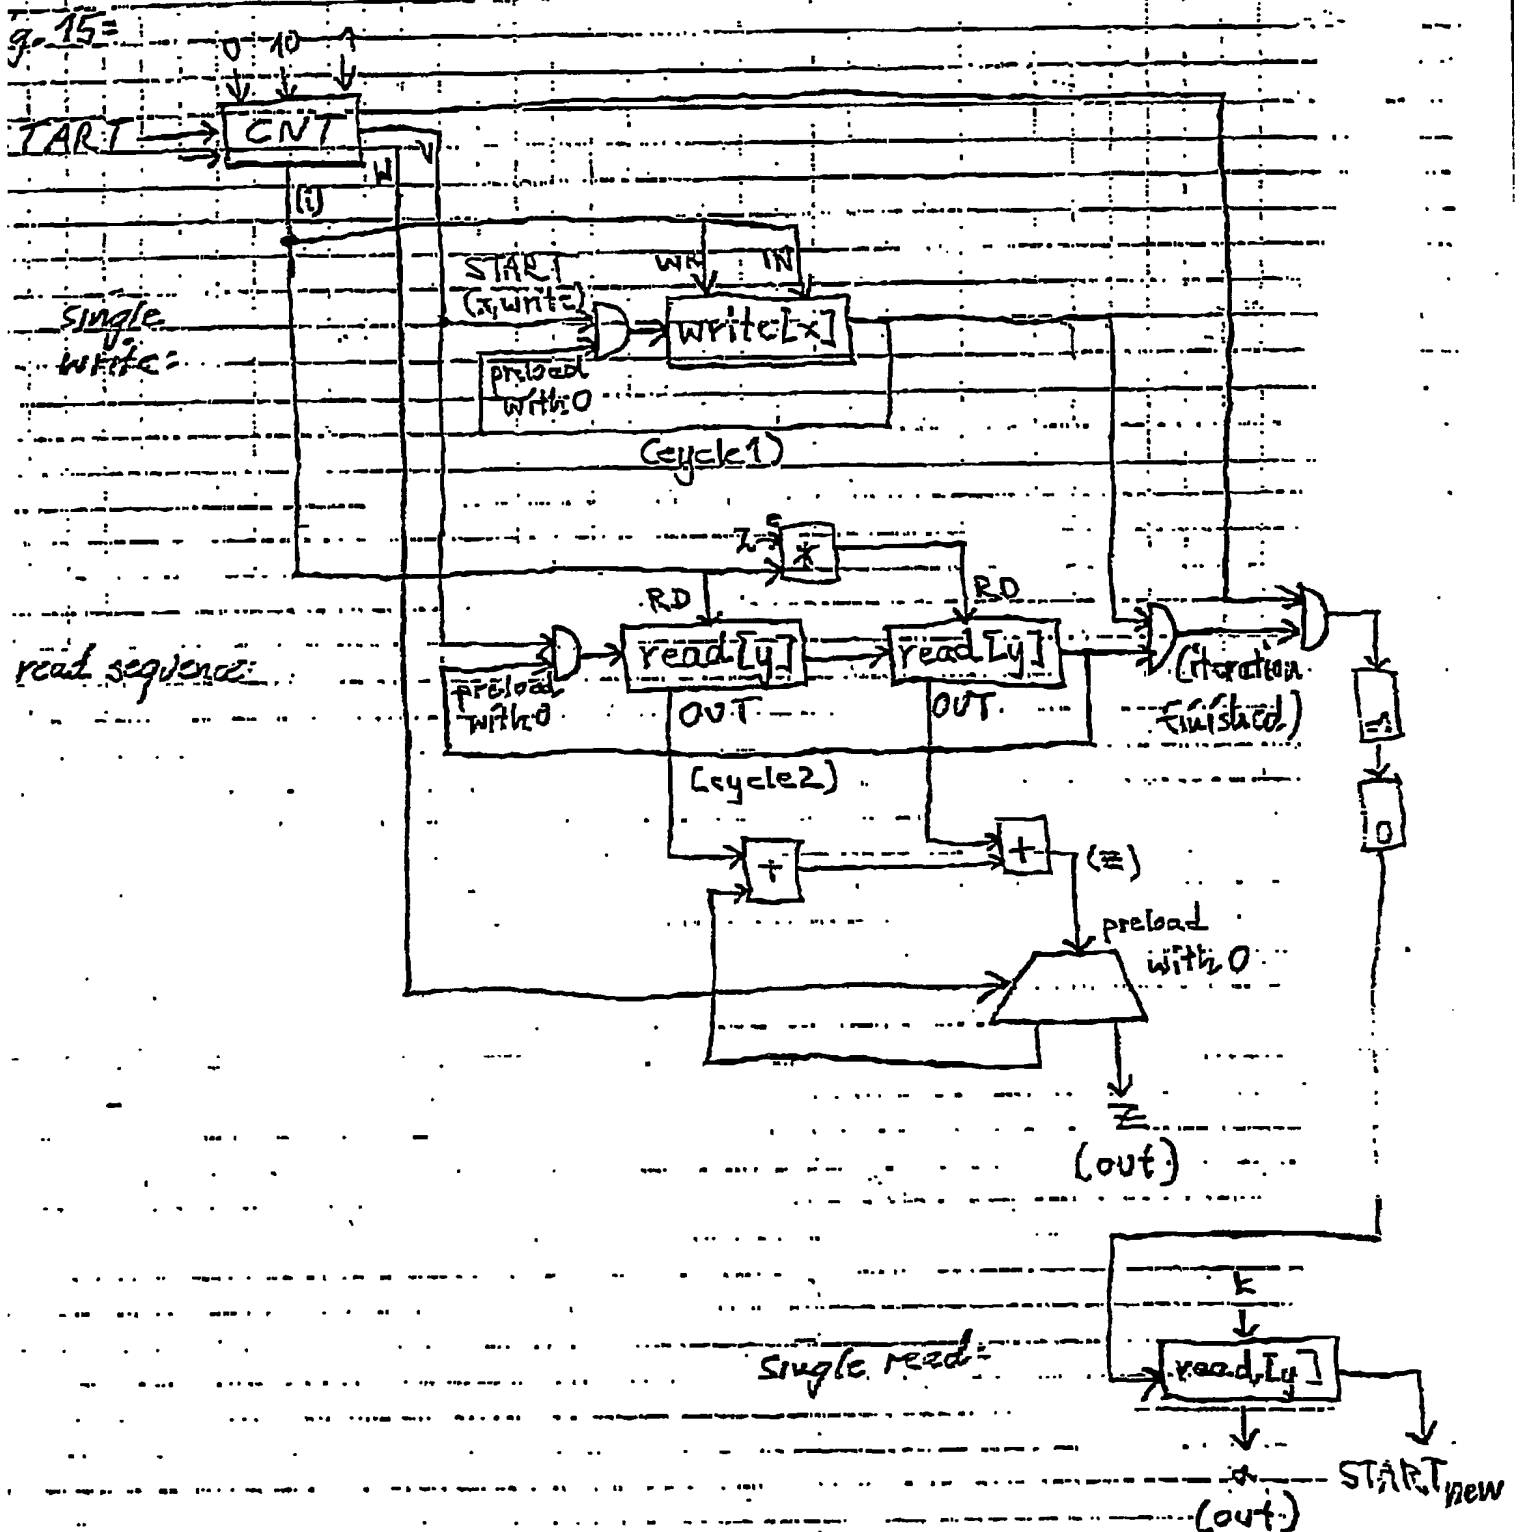 g. 15:
0 10 1
TART
CNT
W
V
(i)
START
(x, write)
WR
IN
single
write:
write[x]
preload
with 0
(cycle1)
*
RD
RD
read sequence:
read[y]
read[y]
preload
with 0
OUT
OUT
(iteration
finished)
(cycle2)
0
+
+
(z)
preload
with 0
z
(out)
k
single read:
read[y]
a
(out)
START new